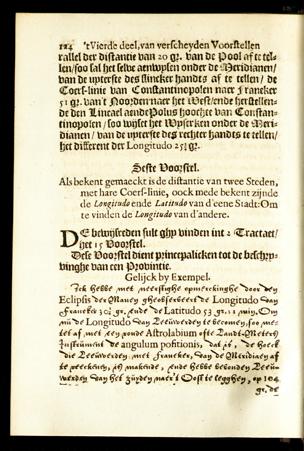 124 't Vierde deel, van verscheyden Voorstellen
rallel der distantie van 20 gr. van de Pool af te tel-
len/soo sal het selve aenwysen onder de Meridianen/
van de upterste des slincker handts af te tellen/ de
Coers-linie van Constantinopolen naer Franeker
51 gr. van't Noorden naer het West/ende herstellen-
de den Liniael aen de Polus hoochte van Constan-
tinopolen/ soo wijset het Wyserken onder de Meri-
dianen/ van de upterste des rechter handts te tellen/
het different der Longitudo 25½ gr.
Seste Voorstel.
Als bekent gemaeckt is de distantie van twee Steden,
met hare Coers-linie, oock mede bekent zijnde
de Longitudo ende Latitudo van d'eene Stadt: Om
te vinden de Longitudo van d'andere.
DE bewijsreden sult ghy vinden int 2 Tractaet/
het 15 Voorstel.
Dese Voorstel dient principalicken tot de beschry-
vinghe van een Provintie.
Gelijck by Exempel.
Ick hebbe met neerstighe opmerckinghe door den
Eclipsis der Maney gheobserveert de Longitudo van
Franeker 30½ gr. ende de Latitudo 53 gr. 11 min. Om
nu de Longitudo van Leeuwerden te becomen, soo met
tet af met een ronde Astrolabium ofte Landt-Meters
Instrument de angulum positionis, dat is, de hoeck
die Leeuwerden met Franeker, van de Meridiaen af
te reeckenen, is makende, ende hebbe bevonden Leeu-
werden van het zuyden naer't Oost te legghen, op 104
gr. de